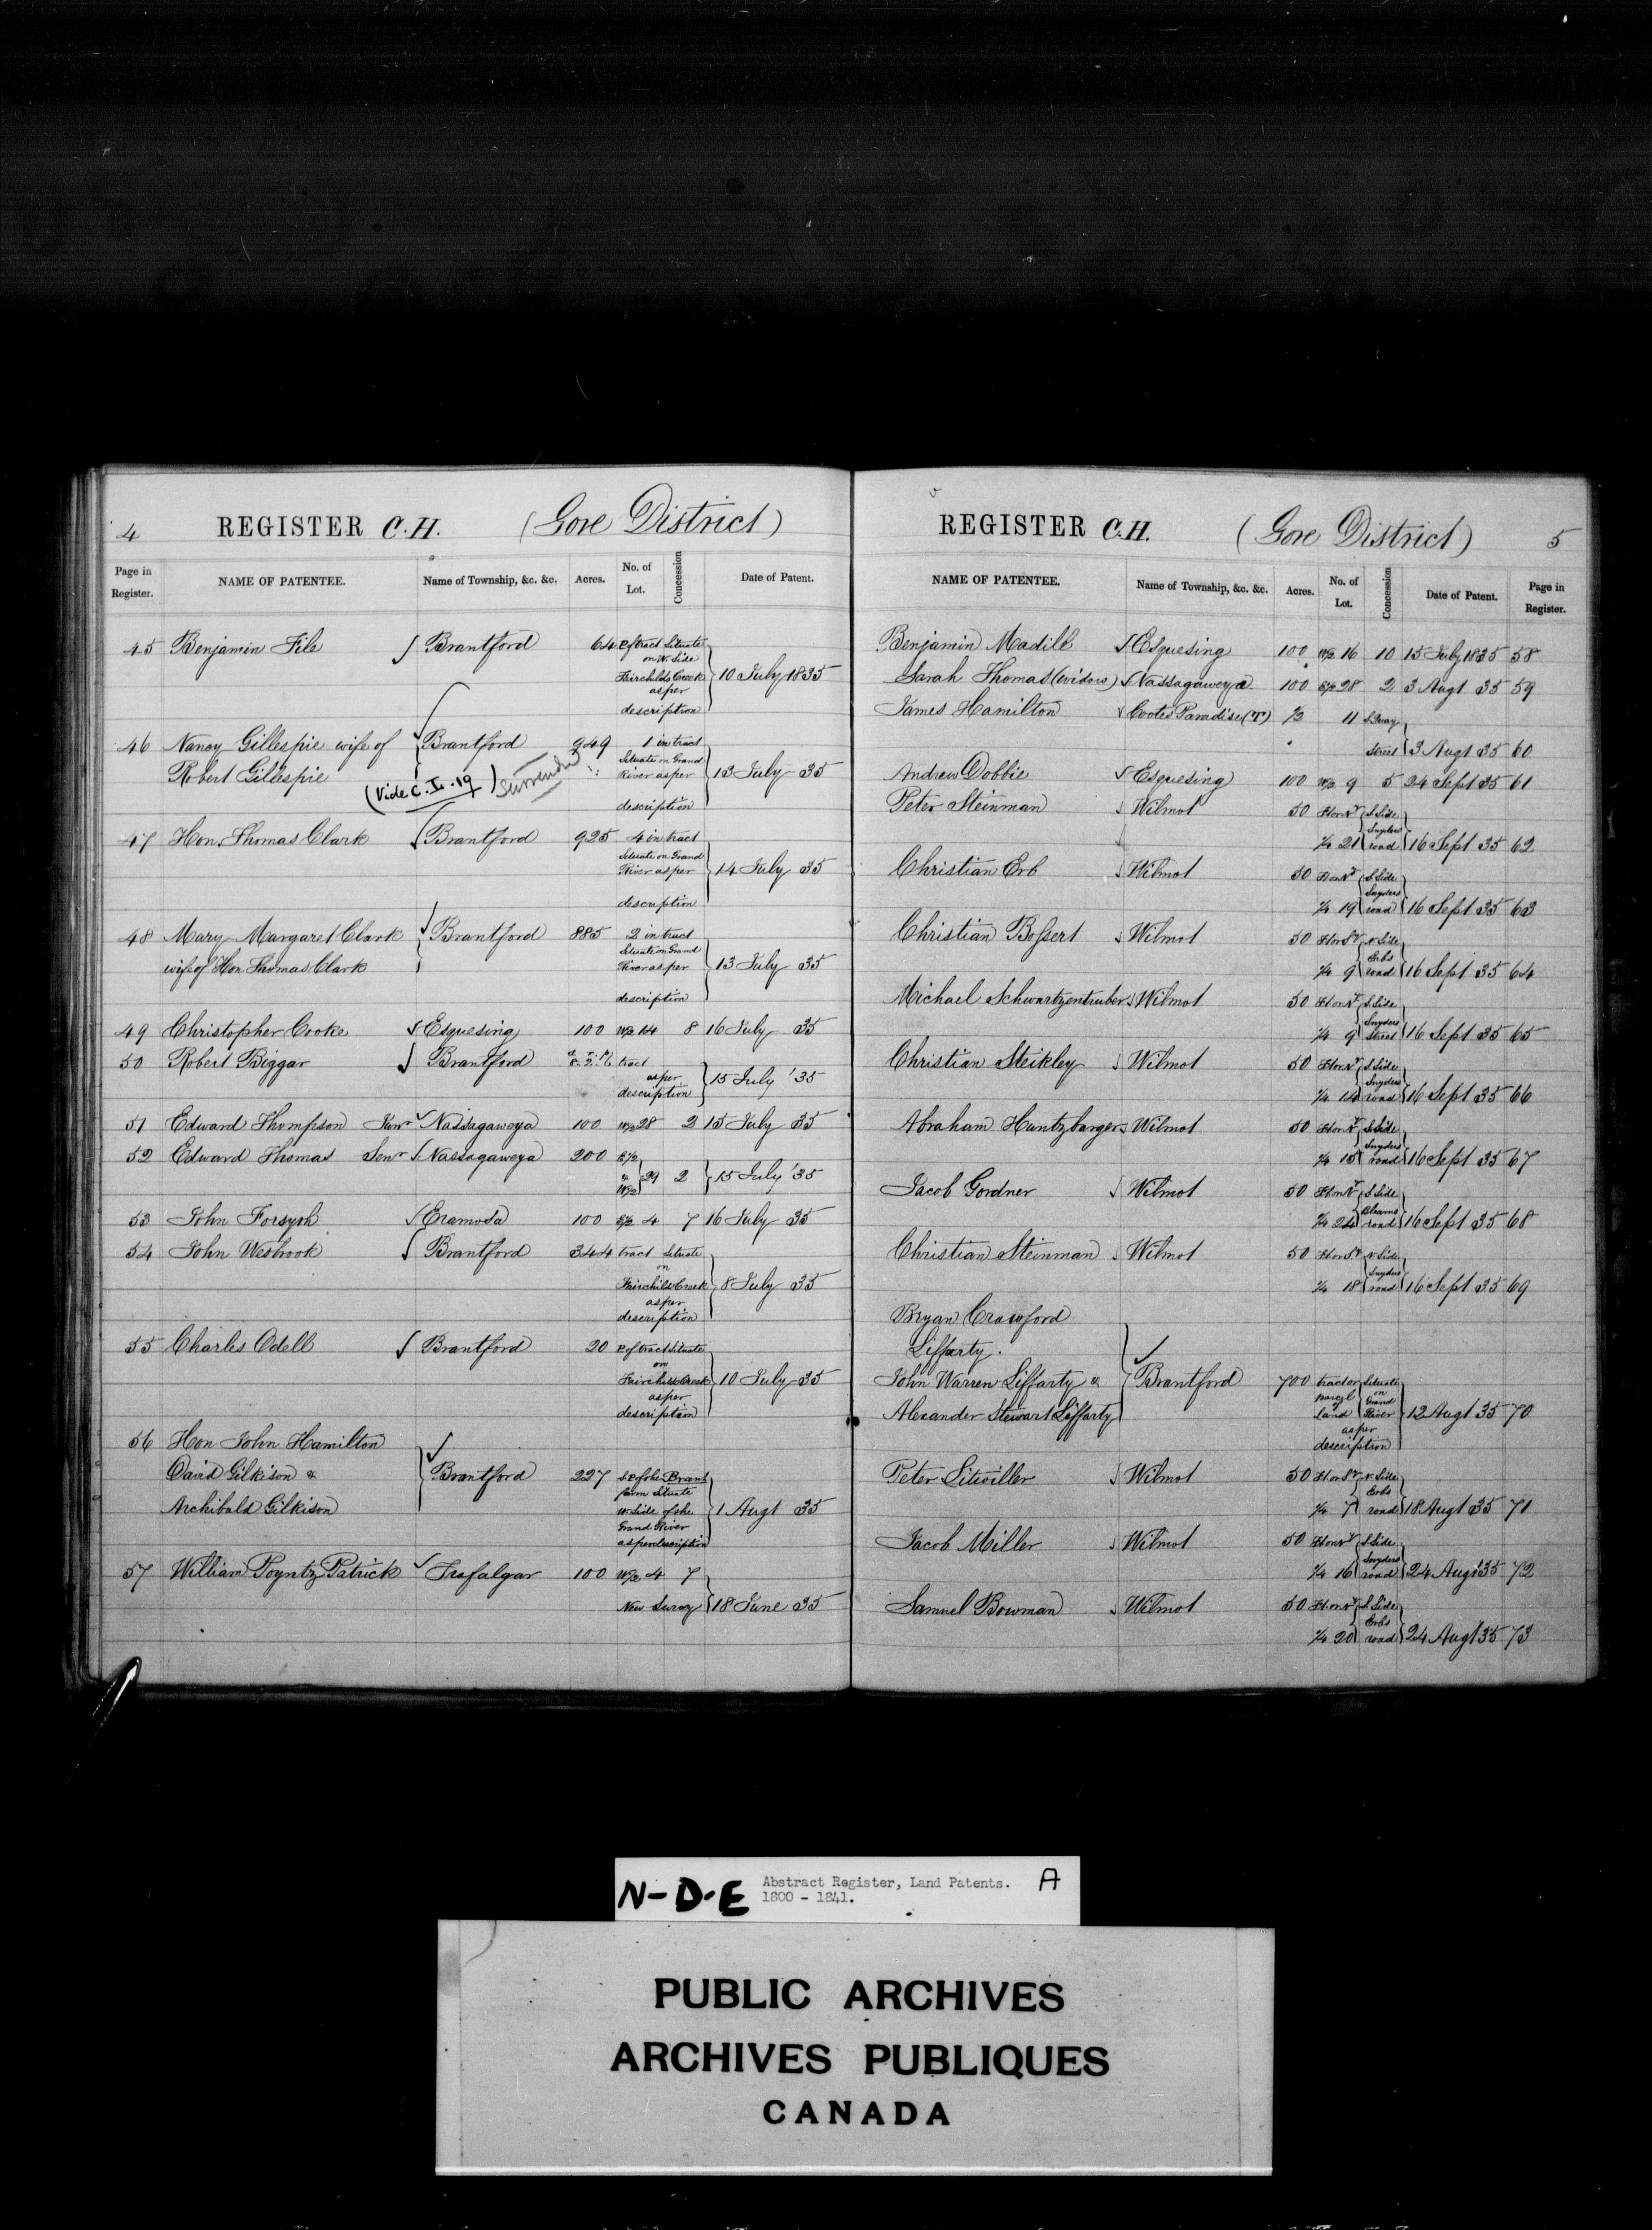 4 REGISTER C.H. (Gore District)
Page in Register. NAME OF PATENTEE. Name of Township, &c. &c. Acres. No. of Lot. Concession Date of Patent.
45 Benjamin File Brantford 64 P. of tract Situate
on W. Side
Fairchilds Creek 10 July 1835
as per
description
46 Nancy Gillespie wife of Brantford 949 1 in tract
Robert Gillespie Situate on Grand
River as per 13 July 35
(Vide C.I. 19) Surrendd
description
47 Hon. Thomas Clark Brantford 925 4 in tract
Situate on Grand
River as per 14 July 35
description
48 Mary Margaret Clark Brantford 885 2 in tract
wife of Hon Thomas Clark Situate on Grand
River as per 13 July 35
description
49 Christopher Cooke Esquesing 100 W½ 14 8 16 July 35
50 Robert Biggar Brantford tract
as per
description 15 July '35
51 Edward Thompson Junr Nassagaweya 100 W½ 28 2 15 July 35
52 Edward Thomas Senr Nassagaweya 200 E½
& 29 2 15 July '35
W½
53 John Forsyth Eramosa 100 E½ 4 7 16 July 35
54 John Wesbrook Brantford 344 tract Situate
on
Fairchilds Creek 8 July 35
as per
description
55 Charles Odell Brantford 20 P. of tract Situate
on
Fairchilds Creek 10 July 35
as per
description
56 Hon John Hamilton
David Gilkison & Brantford 227 S.P. of the Brant
farm Situate
Archibald Gilkison W. Side of the 1 Augt 35
Grand River
as per description
57 William Poyntz Patrick Trafalgar 100 W½ 4 7
New Survey 18 June 35
REGISTER C.H. (Gore District) 5
NAME OF PATENTEE. Name of Township, &c. &c. Acres. No. of Lot. Concession Date of Patent. Page in Register.
Benjamin Madill Esquesing 100 W½ 16 10 15 July 1835 58
Sarah Thomas (widow) Nassagaweya 100 E½ 28 2 3 Augt 35 59
James Hamilton Cootes Paradise (T) ½ 11
Street 3 Augt 35 60
Andrew Dobbie Esquesing 100 W½ 9 5 24 Sept 35 61
Peter Steinman Wilmot 50 S. Side
Snyders
¼ 21 road 16 Sept 35 62
Christian Erb Wilmot 50 S. Side
Snyders
¼ 19 road 16 Sept 35 63
Christian Bossert Wilmot 50 N. Side
Erbs
¼ 9 road 16 Sept 35 64
Michael Schwartzentruber Wilmot 50 S. Side
Snyders
¼ 9 Street 16 Sept 35 65
Christian Steikley Wilmot 50 S. Side
Snyders
¼ 14 road 16 Sept 35 66
Abraham Huntzbarger Wilmot 50 S. Side
Snyders
¼ 15 road 16 Sept 35 67
Jacob Gordner Wilmot 50 S. Side
Bleams
¼ 24 road 16 Sept 35 68
Christian Steinman Wilmot 50 N. Side
Snyders
¼ 18 road 16 Sept 35 69
Bryan Crawford
Lifferty.
John Warren Lifferty & Brantford 700 tract or Situate
parcel on
of Grand
Alexander Stewart Lifferty Land River 12 Augt 35 70
as per
description
Peter Litwiller Wilmot 50 N. Side
Erbs
¼ 7 road 18 Augt 35 71
Jacob Miller Wilmot 50 S. Side
Snyders
¼ 16 road 24 Augt 35 72
Samuel Bowman Wilmot 50 S. Side
Erbs
¼ 20 road 24 Augt 35 73
N-D-E Abstract Register, Land Patents. A
1800 - 1841.
PUBLIC ARCHIVES
ARCHIVES PUBLIQUES
CANADA